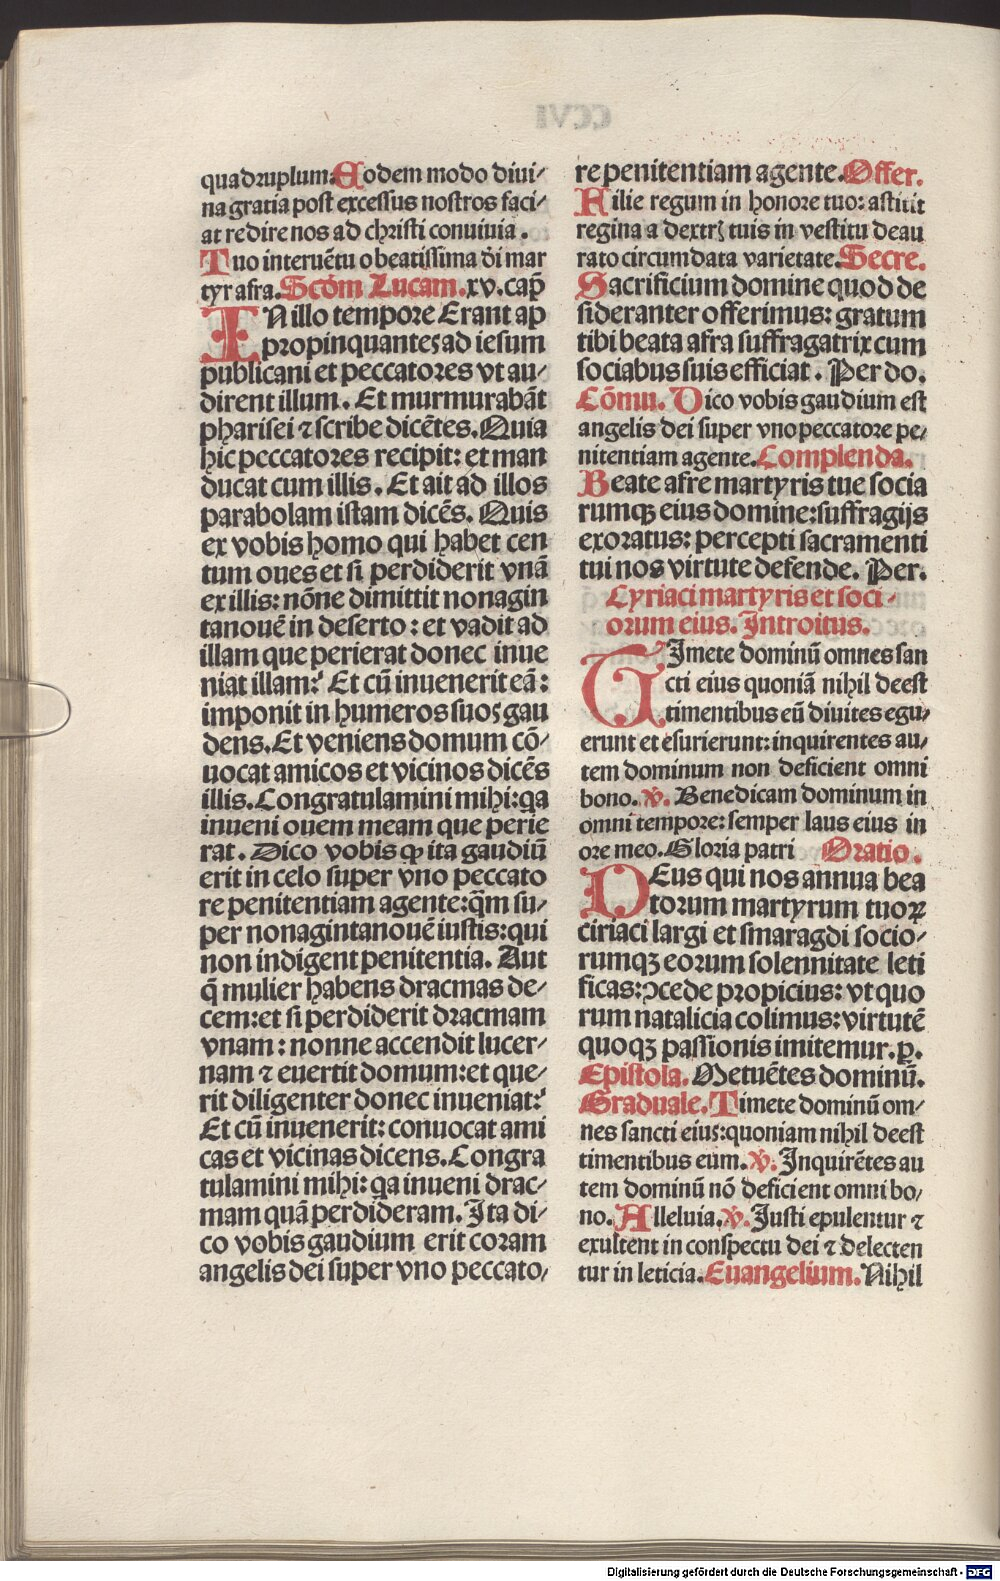 quadruplum. Eodem modo diui⸗
na gratia post excessus nostros faci⸗
at redire nos ad christi conuiuia.
Tuo interuētu o beatissima dī mar
tyr afra. Scd̄m Lucam. xv. cap̄
IN illo tempore Erant ap
propinquantes ad iesum
publicani et peccatores vt au⸗
dirent illum. Et murmurabāt
pharisei ⁊ scribe dicētes. Quia
hic peccatores recipit: et man
ducat cum illis. Et ait ad illos
parabolam istam dicēs. Quis
ex vobis homo qui habet cen
tum oues et si perdiderit vnā
ex illis: nōne dimittit nonagin
tanouē in deserto: et vadit ad
illam que perierat donec inue
niat illam: Et cū inuenerit eā:
imponit in humeros suos gau
dens. Et veniens domum cō⸗
uocat amicos et vicinos dicēs
illis. Congratulamini mihi: qa
inueni ouem meam que perie
rat. Dico vobis ꝙ ita gaudiū
erit in celo super vno peccato
re penitentiam agente: q̄m su⸗
per nonagintanouē iustis: qui
non indigent penitentia. Aut
q̄ mulier habens dracmas de⸗
cem: et si perdiderit dracmam
vnam: nonne accendit lucer⸗
nam ⁊ euertit domum: et que⸗
rit diligenter donec inueniat:
Et cū inuenerit: conuocat ami
cas et vicinas dicens. Congra
tulamini mihi: qa inueni drac⸗
mam quā perdideram. Ita di⸗
co vobis gaudium erit coram
angelis dei super vno peccato⸗
re penitentiam agente. Offer.
Filie regum in honore tuo: astitit
regina a dextrꝭ tuis in vestitu deau
rato circumdata varietate. Secre.
Sacrificium domine quod de
sideranter offerimus: gratum
tibi beata afra suffragatrix cum
sociabus suis efficiat. Per do.
Cōmu. Dico vobis gaudium est
angelis dei super vno peccatore pe⸗
nitentiam agente. Complenda.
Beate afre martyris tue socia
rumqꝫ eius domine: suffragijs
exoratus: percepti sacramenti
tui nos virtute defende. Per.
Cyriaci martyris et soci⸗
orum eius. Introitus.
TImete dominū omnes san
cti eius quoniā nihil deest
timentibus eū diuites egu⸗
erunt et esurierunt: inquirentes au⸗
tem dominum non deficient omni
bono. ℣. Benedicam dominum in
omni tempore: semper laus eius in
ore meo. Gloria patri Oratio.
DEus qui nos annua bea
torum martyrum tuoꝝ
ciriaci largi et smaragdi socio⸗
rumqꝫ eorum solennitate leti
ficas: ↄcede propicius: vt quo
rum natalicia colimus: virtutē
quoqꝫ passionis imitemur. p̲.
Epistola. Metuētes dominū.
Graduale. Timete dominū om⸗
nes sancti eius: quoniam nihil deest
timentibus eum. ℣. Inquirētes au
tem dominū nō deficient omni bo⸗
no. Alleluia. ℣. Justi epulentur ⁊
exultent in conspectu dei ⁊ delecten
tur in leticia. Euangelium. Nihil
Digitalisierung gefördert durch die Deutsche Forschungsgemeinschaft - DFG